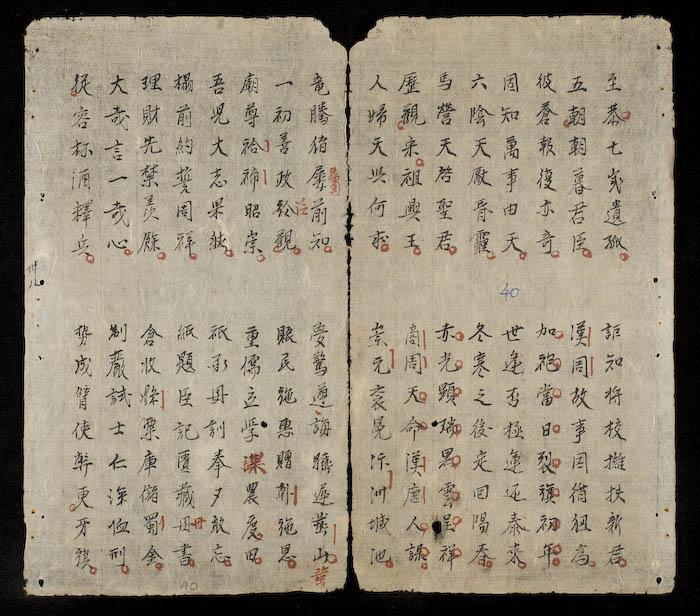 至恭七歲遺孤
詎知將校擁扶新君
五朝朝暮君臣
漢周故事因循紐為
彼蒼報復亦奇
加袍當日裂旗初年
固知萬事由天
世逢否極運还泰來
六陰天厭昏霾
冬寒之後定回陽春
馬營天啓聖君
赤光顯瑞黑雲呈祥
歷觀宋祖興王
商周天命漢唐人謀
人婦天與何求
崇元袞冕汴洲城池
40
竜騰猪孱前知
夢驚遵誨遲華山
一初善政觀
賑民施惠贈施恩
廟尊祫禘昭崇
重儒立學深農度田
吾児大志果然
祇承毋訓奉夕敢忘
榻前約誓周祥
紙題臣記匱藏毋書
理財先禁羨餘
倉收縣粟庫儲蜀金
大哉言一哉心
制嚴試士仁深恤刑
從容杯酒釋兵
勢成臂使更牙旗
卅八
40